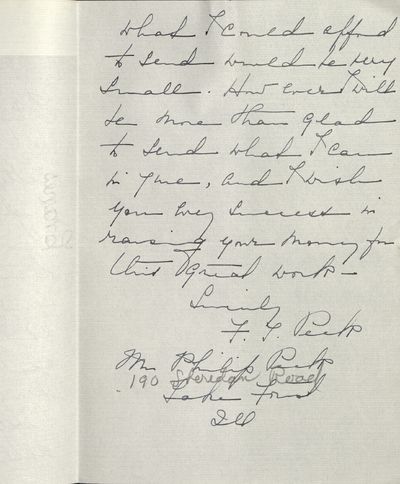 what I could afford
to send would be very
small. How ever I will
be more than glad
to send what I can
in June, and I wish
you every success in
raising your money for
this great work -
Sincerely
F. T. Peck
Mrs Philip Peck
190 Sheredan Road
Lake Forest
Ill